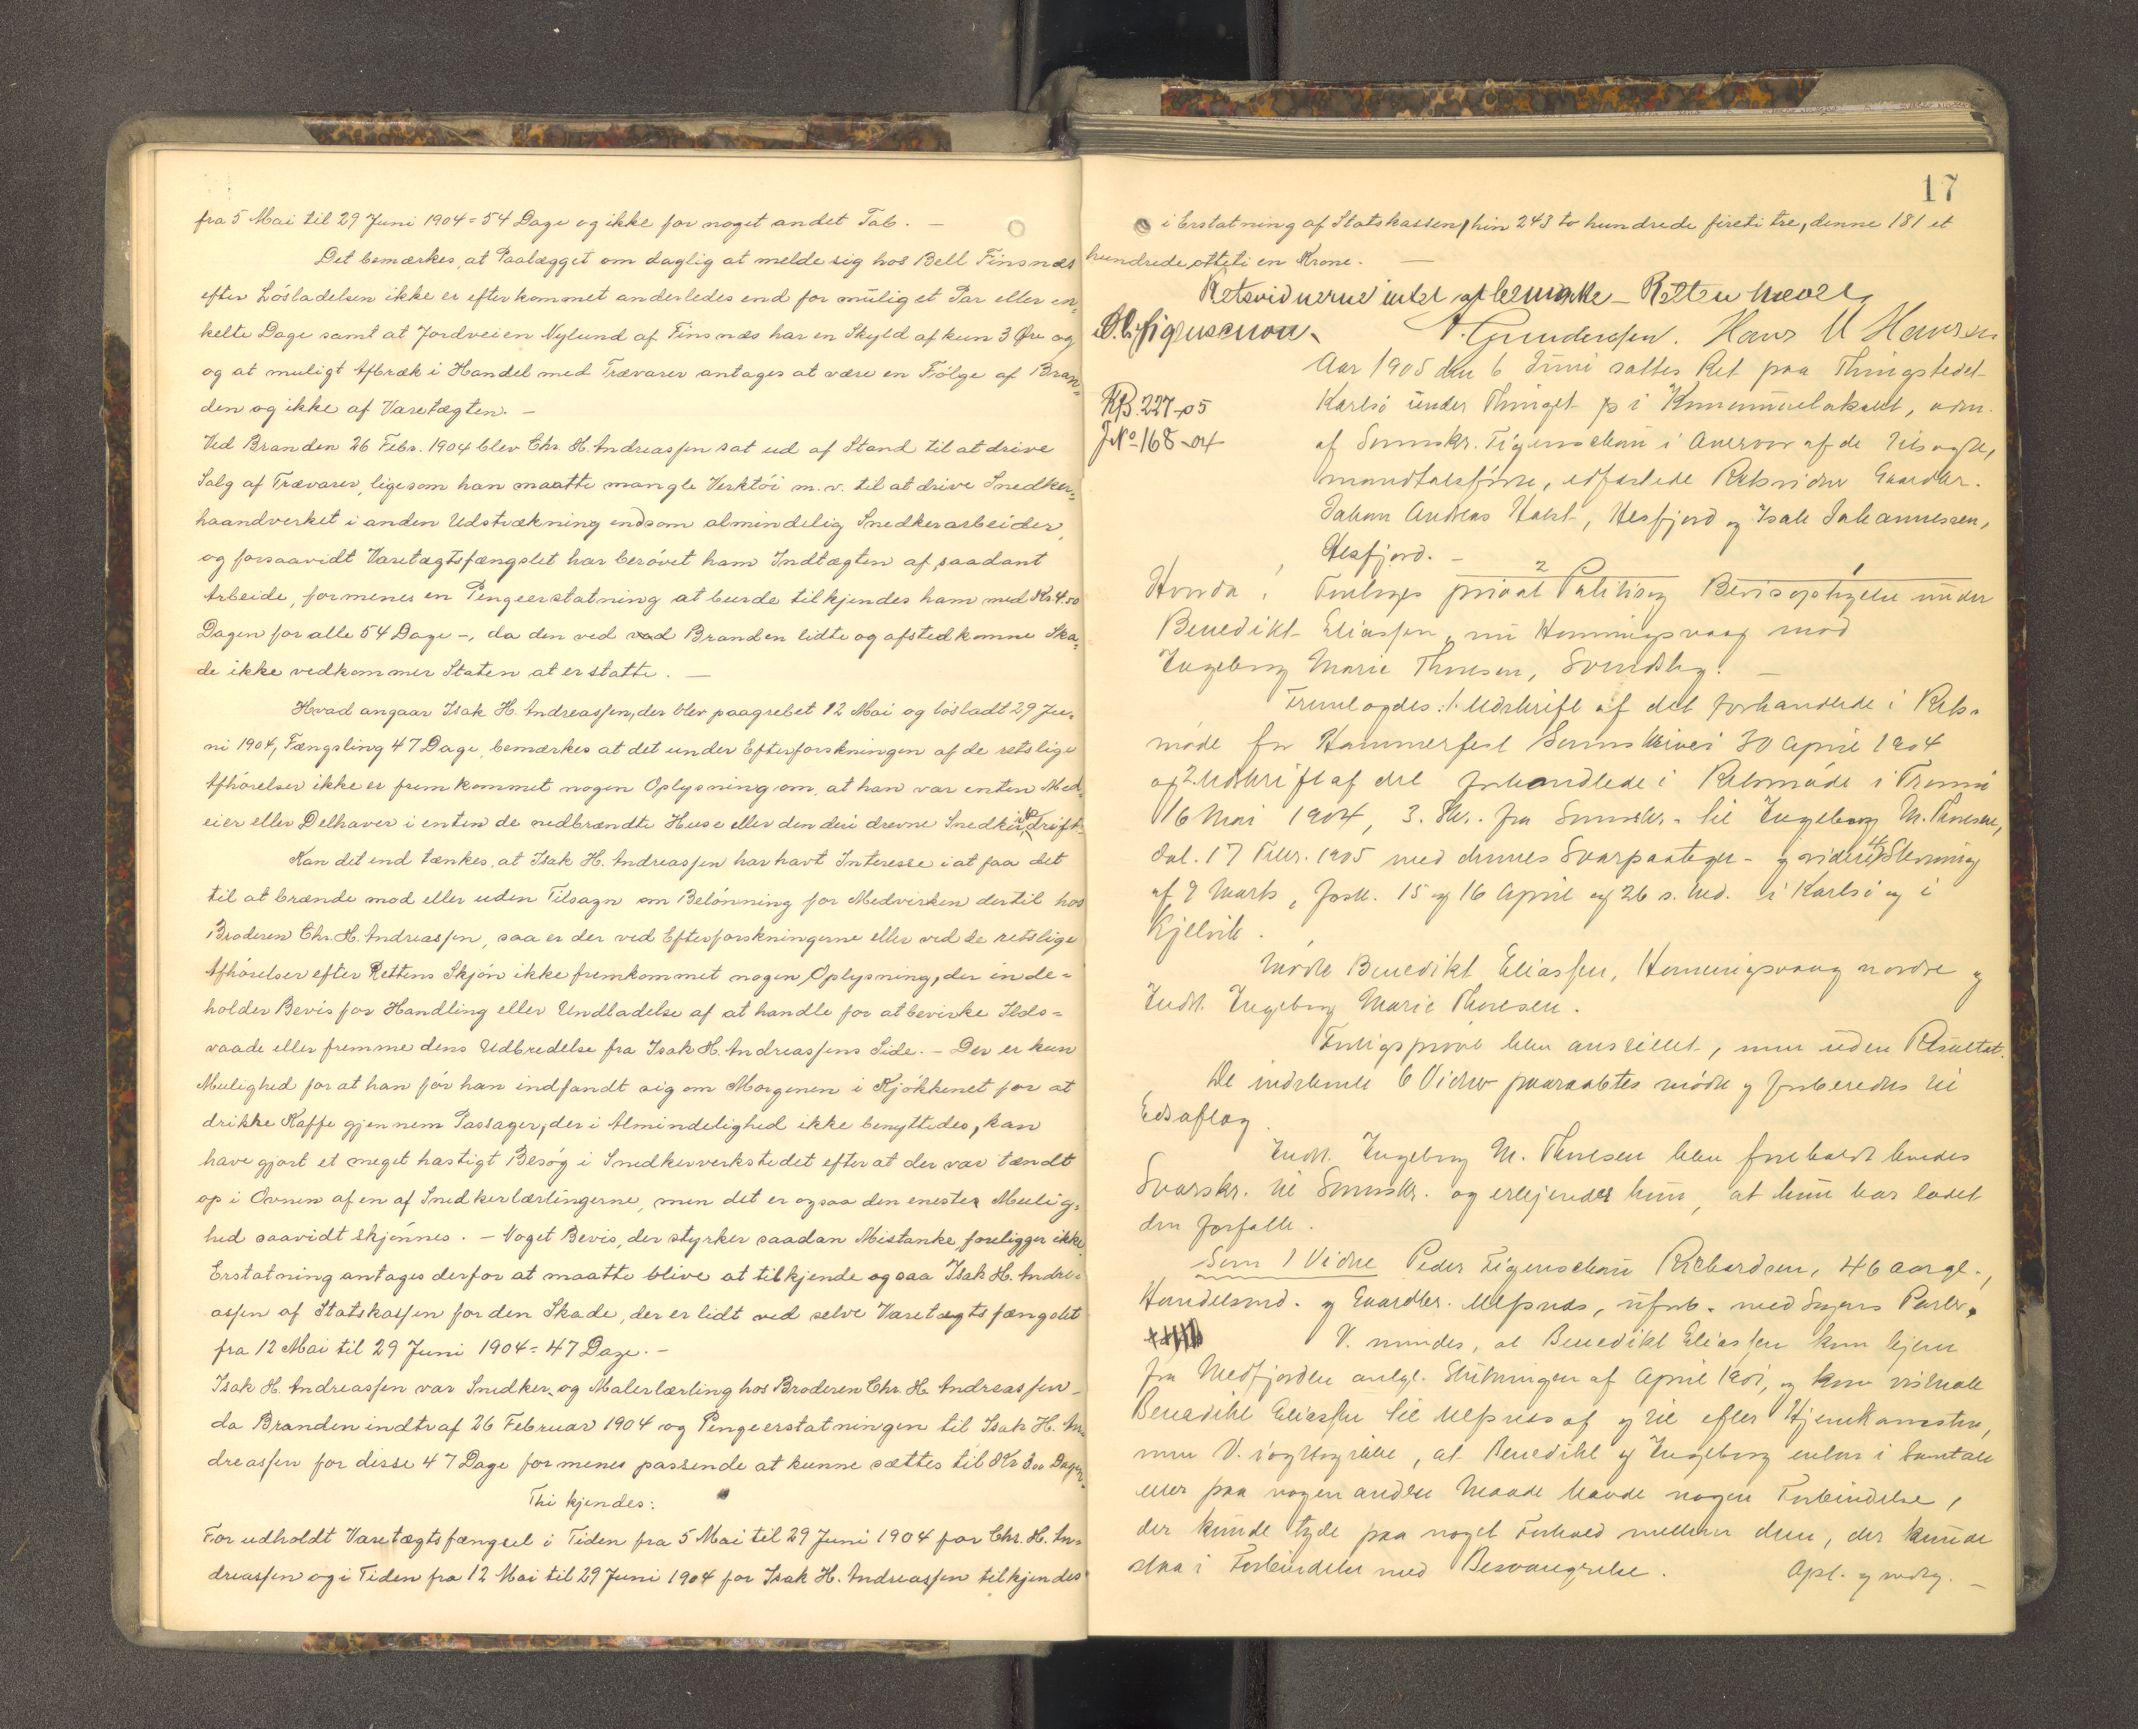 fra 5 Mai til 29 Juni 1904 = 54 Dage og ikke for noget andet Tab. —
Det bemærkes, at Paalægget om daglig at melde sig hos Bell Finsnæs
efter Lösladelsen ikke er efterkommet anderledes end for mulig et Par eller en-
kelte Dage samt at Jordveien Nylund af Finsnæs har en Skyld af kun 3 Øre og
og at muligt Afbræk i Handel med Trævarer antages at være en Fölge af Bran-
den og ikke af Varetægten. —
Ved Branden 26 Febr. 1904 blev Chr. H. Andreassen sat ud af Stand til at drive
Salg af Trævarer, ligesom han maatte mangle Verktöi m. v. til at drive Snedker-
haandverket i anden Udstrækning end som almindelig Snedkerarbeider,
og forsaavidt Varetægtsfængslet har berövet ham Indtægten af saadant
Arbeide, formenes en Pengeerstatning at burde tilkjendes ham med Kr. 4.50
Dagen for alle 54 Dage —, da den ved Branden lidte og afstedkomne Ska-
de ikke vedkommer Staten at erstatte. —
Hvad angaar Isak H. Andreassen, der blev paagrebet 12 Mai og lösladt 29 Ju-
ni 1904, Fængsling 47 Dage, bemærkes at det under Efterforskningen af de retslige
Afhörelser ikke er fremkommet nogen Oplysning om, at han var enten Med-
eier eller Delhaver i enten de nedbrændte Huse eller den deri drevne Snedkerbedrift.
Kan det end tænkes, at Isak H. Andreassen har havt Interesse i at faa det
til at brænde mod eller uden Tilsagn om Belönning for Medvirken dertil hos
Broderen Chr. H. Andreassen, saa er der ved Efterforskningerne eller ved de retslige
Afhörelser efter Rettens Skjön ikke fremkommet nogen Oplysning, der inde-
holder Bevis for Handling eller Undladelse af at handle for at bevirke Ilds-
vaade eller fremme dens Udbredelse fra Isak H. Andreassens Side. — Der er kun
Mulighed for at han för han indfandt sig om Morgenen i Kjökkenet for at
drikke Kaffe gjennem Passager, der i Almindelighed ikke benyttedes, kan
have gjort et meget hastigt Besög i Snedkerverkstedet efter at der var tændt
op i Ovnen af en af Snedkerlærlingerne, men det er ogsaa den eneste Mulig-
hed saavidt skjönnes. — Noget Bevis, der styrker saadan Mistanke foreligger ikke
Erstatning antages derfor at maatte blive at tilkjende ogsaa Isak H. Andre-
assen af Statskassen for den Skade, der er lidt ved selve Varetægtsfængslet
fra 12 Mai til 29 Juni 1904 = 47 Dage. —
Isak H. Andreassen var Snedker- og Malerlærling hos Broderen Chr. H. Andreassen
da Branden indtraf 26 Februar 1904 og Pengeerstatningen til Isak H. An-
dreassen for disse 47 Dage formenes passende at kunne sættes til Kr 3.00 Dagen.
Thi kjendes:
For udholdt Varetægtsfængsel i Tiden fra 5 Mai til 29 Juni 1904 for Chr. H. An-
dreassen og i Tiden fra 12 Mai til 29 Juni 1904 for Isak H. Andreassen tilkjendes
17
i Erstatning af Statskassen, hin 243 to hundrede fireti tre, denne 181 et
hundrede otteti en Krone. —
Retsvidnerne intet at bemærke — Retten hævet
O. L. Figenschou. A. Gundersen. Hans M Hansen
Aar 1905 den 6 Juni sattes Ret paa Thingstedet
KB. 227-05
Karlsö under Thinget i Kommunelokalet, adm.
J No 168-04
af Sorenskr. Figenschau i Overvær af de tilsagte,
mandtalsførte, edfæstede Retsvidner Gaardbr.
Johan Andreas Hals, Hesfjord og Isak Johannessen,
Hesfjord. —
Hvorda: Foretoges privat Politisag Bevisoptagelse under
Benedikt Eliassen, nu Honningsvaag mod
Ingeborg Marie Thoresen, Svendsby. —
Fremlagdes: 1. Udskrift af det forhandlede i Rets-
møde for Hammerfest Sorenskriveri 30 April 1904
og 2. Udskrift af det forhandlede i Retsmøde i Tromsö
16 Mai 1904, 3. Skr. fra Sorenskr. til Ingeborg M. Thoresen,
dat. 17 Febr. 1905 med dennes Svarpaategn. og videre 4 Stevning
af 9 Marts, fork. 15 og 16 April og 26 s. Md. i Karlsö og i
Kjelvik.
Mödte Benedikt Eliassen, Honningsvaag nordre og
Indst. Ingeborg Marie Thoresen.
Forligspröve blev anstillet, men uden Resultat.
De indstevnte 6 Vidner paaraabtes mödte og forberedtes til
Edsaflæg.
Indst. Ingeborg M. Thoresen blev foreholdt hendes
Svarskr. til Sorenskr. og erkjender hun, at hun har ladet
den forfatte.
Som 1 Vidne Peder Figenschau Richardsen, 46 aar gl.,
Handelsmd. og Gaardbr. Ulfsnes, uforb. med Sagens Parter.
V. mindes, at Benedikt Eliassen kom hjem
fra Nedfjorden antgl. Slutningen af April 1901, og kom
Benedikt Eliassen til Ulfsnes af og til efter Hjemkomsten,
men V. iagttog ikke, at Benedikt og Ingeborg enten i Samtale
eller paa nogen anden Maade havde nogen Forbindelse,
der kunde tyde paa noget Forhold mellem dem, der kunde
staa i Forbindelse med Besvangrelse. Opl. og vedtg. —